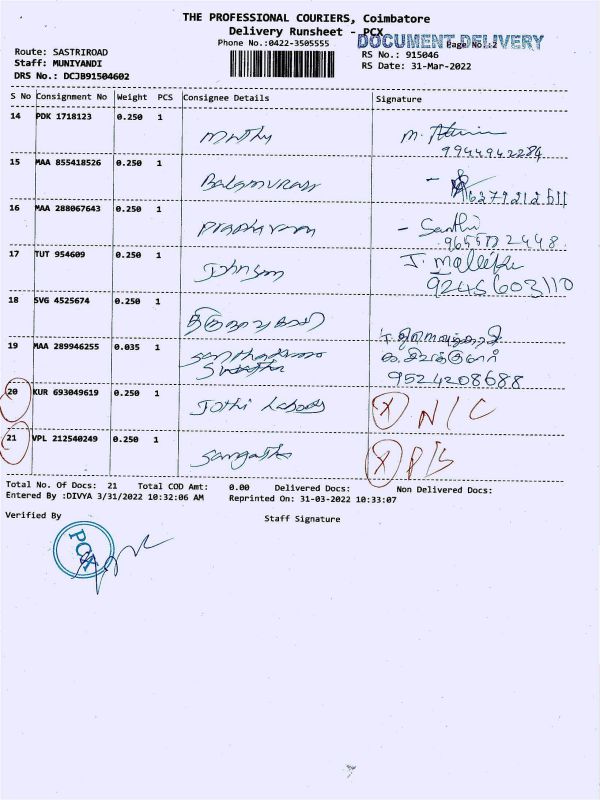 THE PROFESSIONAL COURIERS, Coimbatore
Delivery Runsheet - PCX
Phone No.:0422-3505555
DOCUMENT DELIVERY
Page No.:2
Route: SASTRIROAD
RS No.: 915046
Staff: MUNIYANDI
RS Date: 31-Mar-2022
DRS No.: DCJB91504602
S No Consignment No Weight PCS Consignee Details Signature
14 PDK 1718123 0.250 1
Muthu M.
9944942284
15 MAA 855418526 0.250 1
Balamurasu 6279212511
16 MAA 288067643 0.250 1
Prabhakaran - Santhi
17 TUT 954609 0.250 1
Johnson J. Mallika
9245603110
18 SVG 4525674 0.250 1
19 MAA 289946255 0.035 1
9524208688
20 KUR 693049619 0.250 1
Jothi X N/C
21 VPL 212540249 0.250 1
Sangeetha X
Total No. Of Docs: 21 Total COD Amt: 0.00 Delivered Docs: Non Delivered Docs:
Entered By :DIVYA 3/31/2022 10:32:06 AM Reprinted On: 31-03-2022 10:33:07
Verified By
Staff Signature
PCX